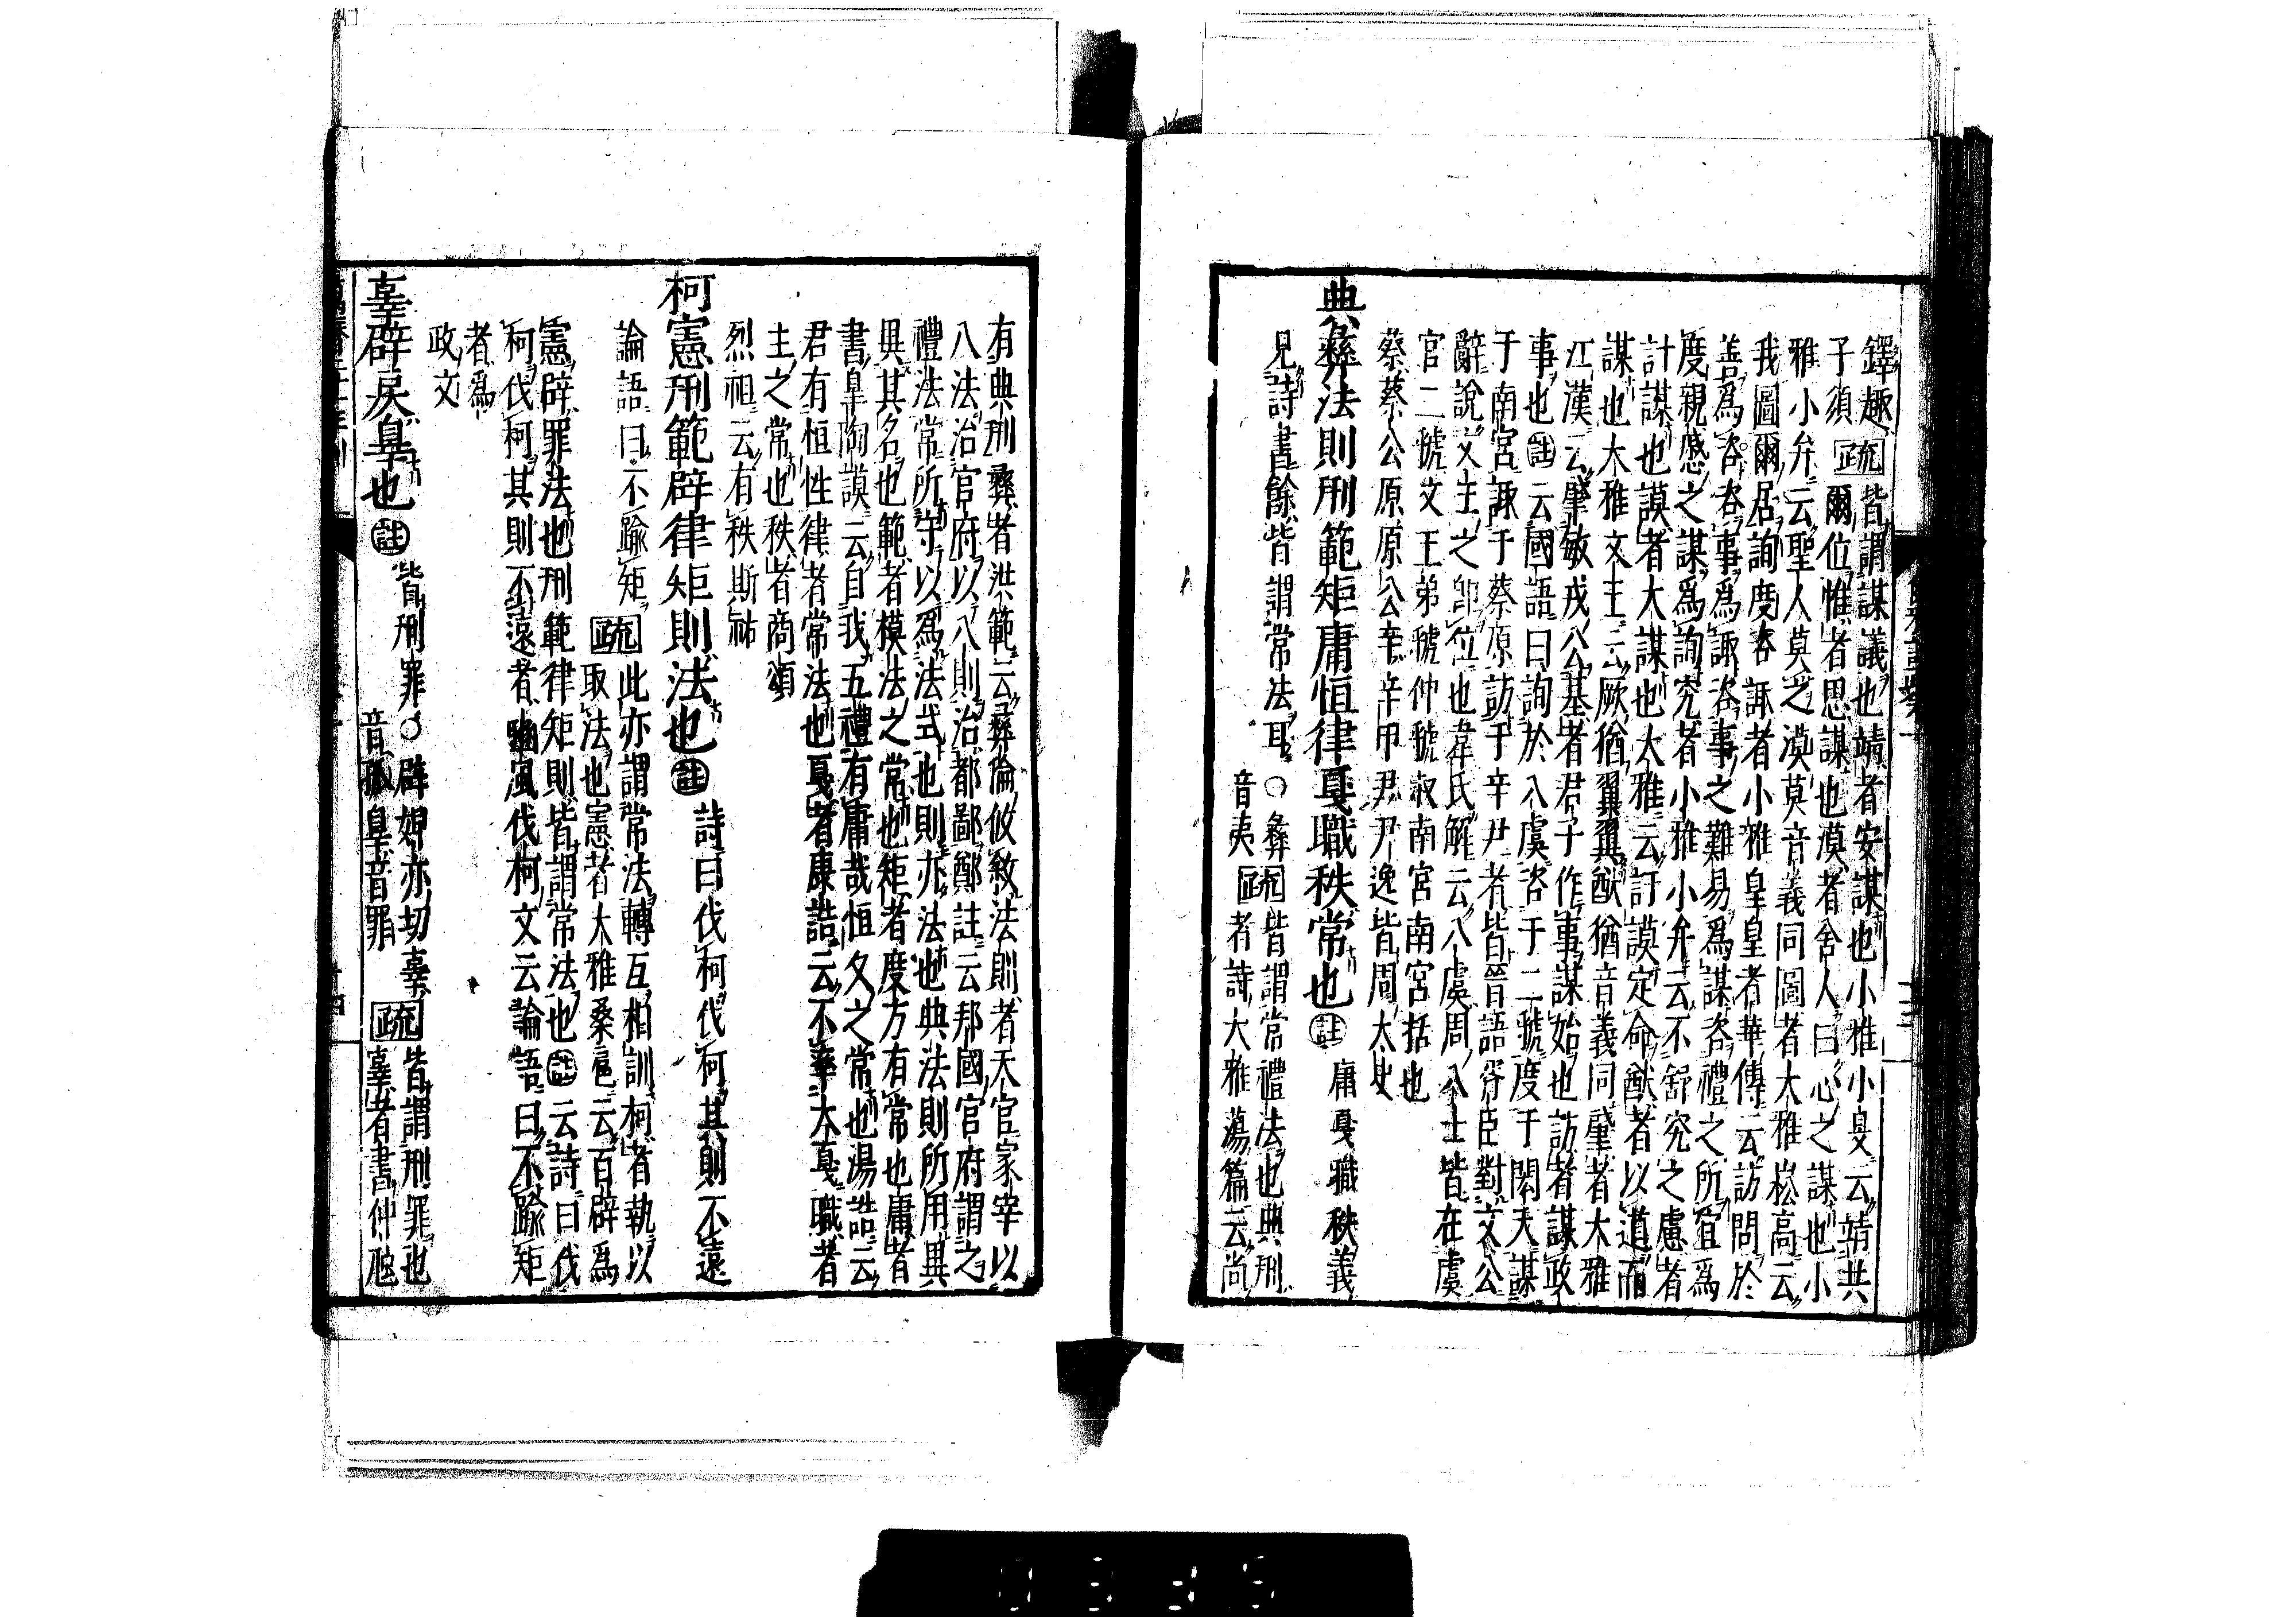 鐸趣
子須疏皆謂謀議也靖者安謀也小雅小旻云靖共
爾位惟者思謀也漠者舍人曰心之謀也小
雅小弁云聖人莫之漠莫音義同圖者大雅崧高云
我圖爾居詢度咨諏者小雅皇皇者華傳云訪問於
善爲咨咨事爲諏咨事之難易爲謀咨禮之所宜爲
度親慼之謀爲詢究者小雅小弁云不舒究之慮者
計謀也謨者大謀也大雅云訏謨定命猷者以道而
謀也大雅文王云厥猶翼翼猷猶音義同肇者大雅
江漢云肇敏戎公基者君子作事謀始也訪者謀政
事也註云國語曰詢於八虞咨于二虢度于閎夭謀
于南宮諏于蔡原訪于辛尹者皆晉語胥臣對文公
辭說文王之卽位也韋氏解云八虞周八士皆在虞
官二虢文王弟虢仲虢叔南宮南宮括也
蔡蔡公原原公辛辛甲尹尹逸皆周太史
典彝法則刑範矩庸恒律戛職秩常也註庸戛職秩義
見詩書餘皆謂常法耳○彝
音夷疏皆謂常禮法也典刑
者詩大雅蕩篇云尚
有典刑彝者洪範云彝倫攸敘法則者天官冢宰以
八法治官府以八則治都鄙鄭註云邦國官府謂之
禮法常所守以爲法式也則亦法也典法則所用異
異其名也範者模法之常也矩者度方有常也庸者
書臯陶謨云自我五禮有庸哉恒久之常也湯誥云
君有恒性律者常法也戛者康誥云不率大戛職者
主之常也秩者商頌
烈祖云有秩斯祜
柯憲刑範辟律矩則法也註詩曰伐柯伐柯其則不遠
論語曰不踰矩疏此亦謂常法轉互相訓柯者執以
取法也憲者大雅桑扈云百辟爲
憲辟罪法也刑範律矩則皆謂常法也註云詩曰伐
柯伐柯其則不遠者豳風伐柯文云論語曰不踰矩
者爲
政文
辜辟戾辠也註皆刑罪○辟婢亦切辜
音孤辠音罪疏皆謂刑罪也
辜者書仲虺